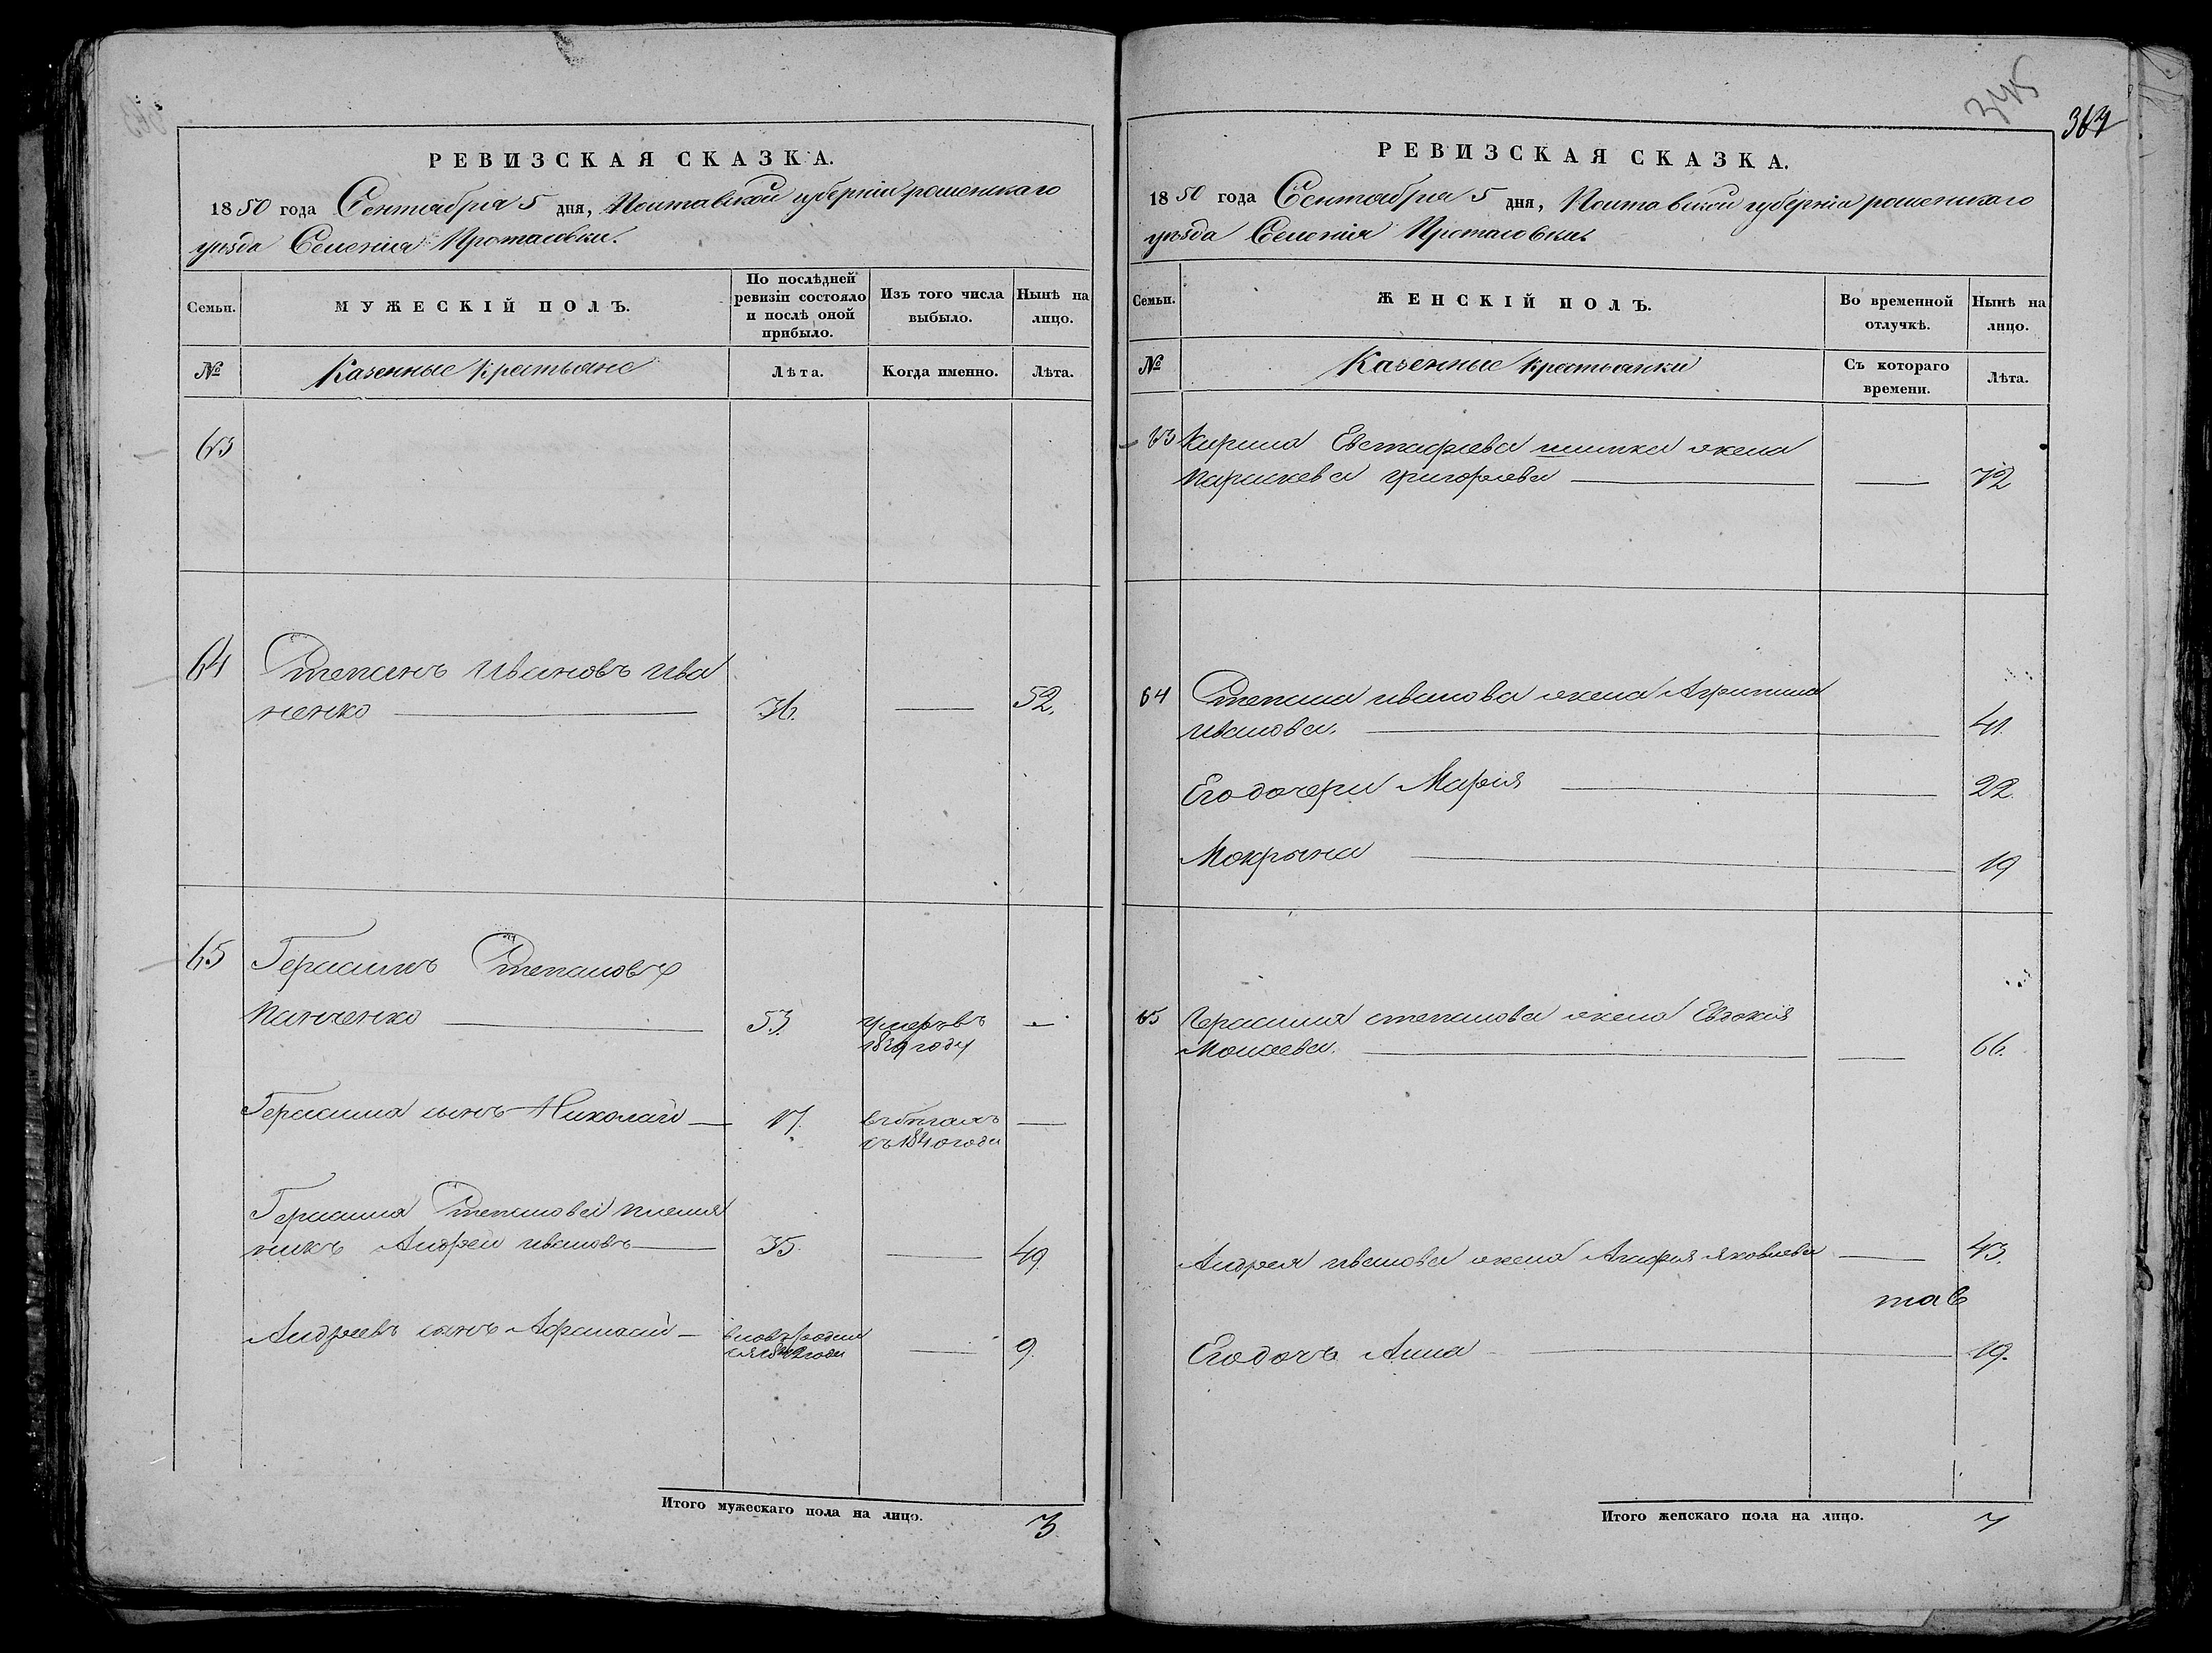 РЕВИЗСКАЯ СКАЗКА.
1850 года Сентября 5 дня, Полтавской губерніи роменскаго
уѣзда Селенія Протасовки.
Семьи.
МУЖЕСКІЙ ПОЛЪ.
По послѣдней
ревизіи состояло
и послѣ оной
прибыло.
Изъ того числа
выбыло.
Нынѣ на
лицо.
№
Казенные крестьяне
Лѣта.
Когда именно.
Лѣта.
63
64 Степанъ Ивановъ Ива
ненко 36. 52.
65 Герасимъ Степановъ
Панченко 53. умеръ въ
1839 году
Герасима сынъ Николай 17. в бѣгахъ
съ 1840 года
Герасима Степанова племян
никъ Андрей ивановъ 35. 49
Андреевъ сынъ Афанасий вновь родил
ся 1842 года 9.
Итого мужескаго пола на лицо. 3
345
364
РЕВИЗСКАЯ СКАЗКА.
1850 года Сентября 5 дня, Полтавской губерніи роменскаго
уѣзда Селенія Протасовки
Семьи.
ЖЕНСКІЙ ПОЛЪ.
Во временной
отлучкѣ.
Нынѣ на
лицо.
№
Казенные крестьянки
Съ котораго
времени.
Лѣта.
63 Кирила Евстафиева жена
Параскева григориева 72
64 Степана иванова жена Агрипина
Иванова. 41.
Его дочери Мария 22.
Мокрына 19
65 Герасима степанова жена Евдокия
Моисеева. 66.
Андрея иванова жена Агафия яковлева 43.
Его дочь Анна 19.
Итого женскаго пола на лицо. 7